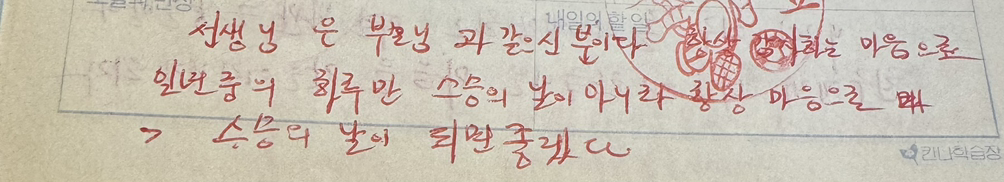 내일의 할 일
선생님 은 부모님 과 같으신 분이다 항상 감사하는 마음으로
일년 중의 하루만 스승의 날이 아니라 항상 마음으로
스승의 날이 되면 좋겠다
킨나학습장